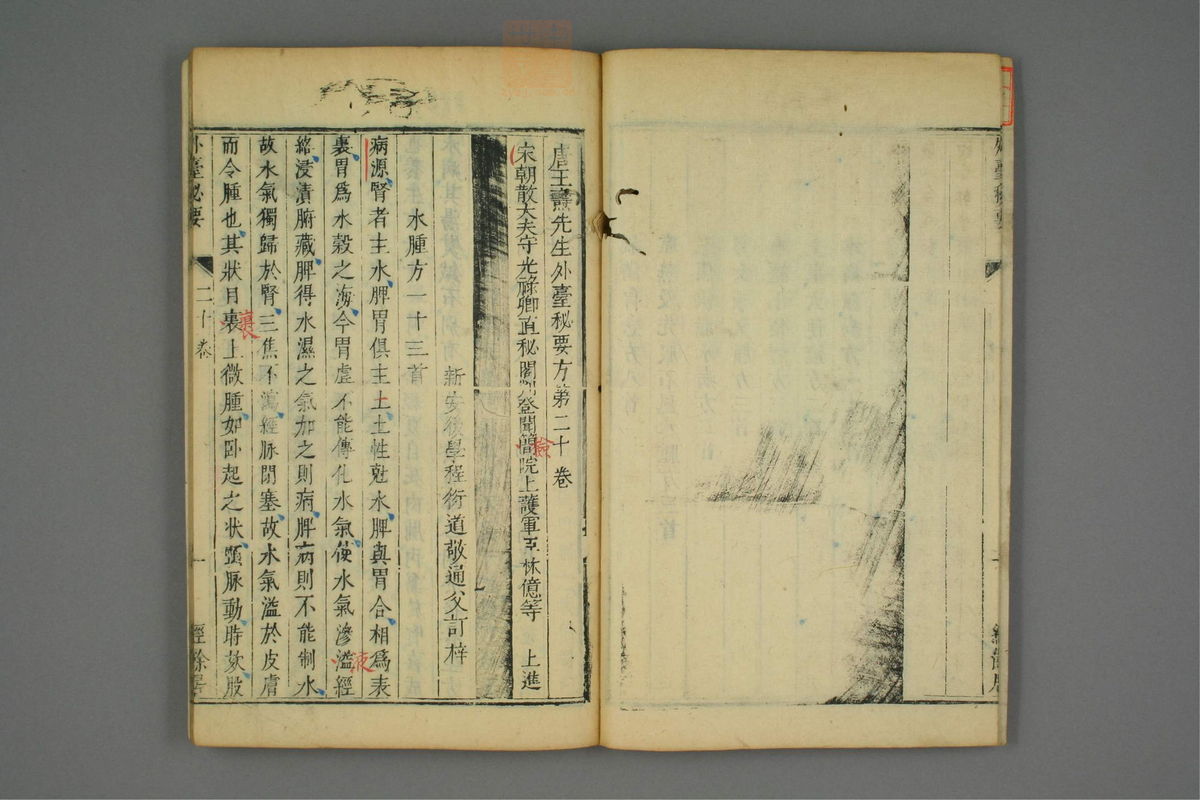 唐王燾先生外臺秘要方第二十卷
宋朝散大夫守光祿卿直秘閣判登聞簡院上護軍臣林億等 上進
檢
新安後學程衍道敬通父訂梓
水腫方一十三首
病源腎者主水脾胃俱主土土性尅水脾與胃合相為表
裏胃為水穀之海今胃虛不能傳化水氣使水氣滲溢經
液
絡浸漬腑藏脾得水濕之氣加之則病脾病則不能制水
故水氣獨歸於腎三焦不瀉經脉閉塞故水氣溢於皮膚
而令腫也其狀目裏上微腫如卧起之狀頸脉動時欬股
裹
外臺秘要
二十卷
一
經餘居